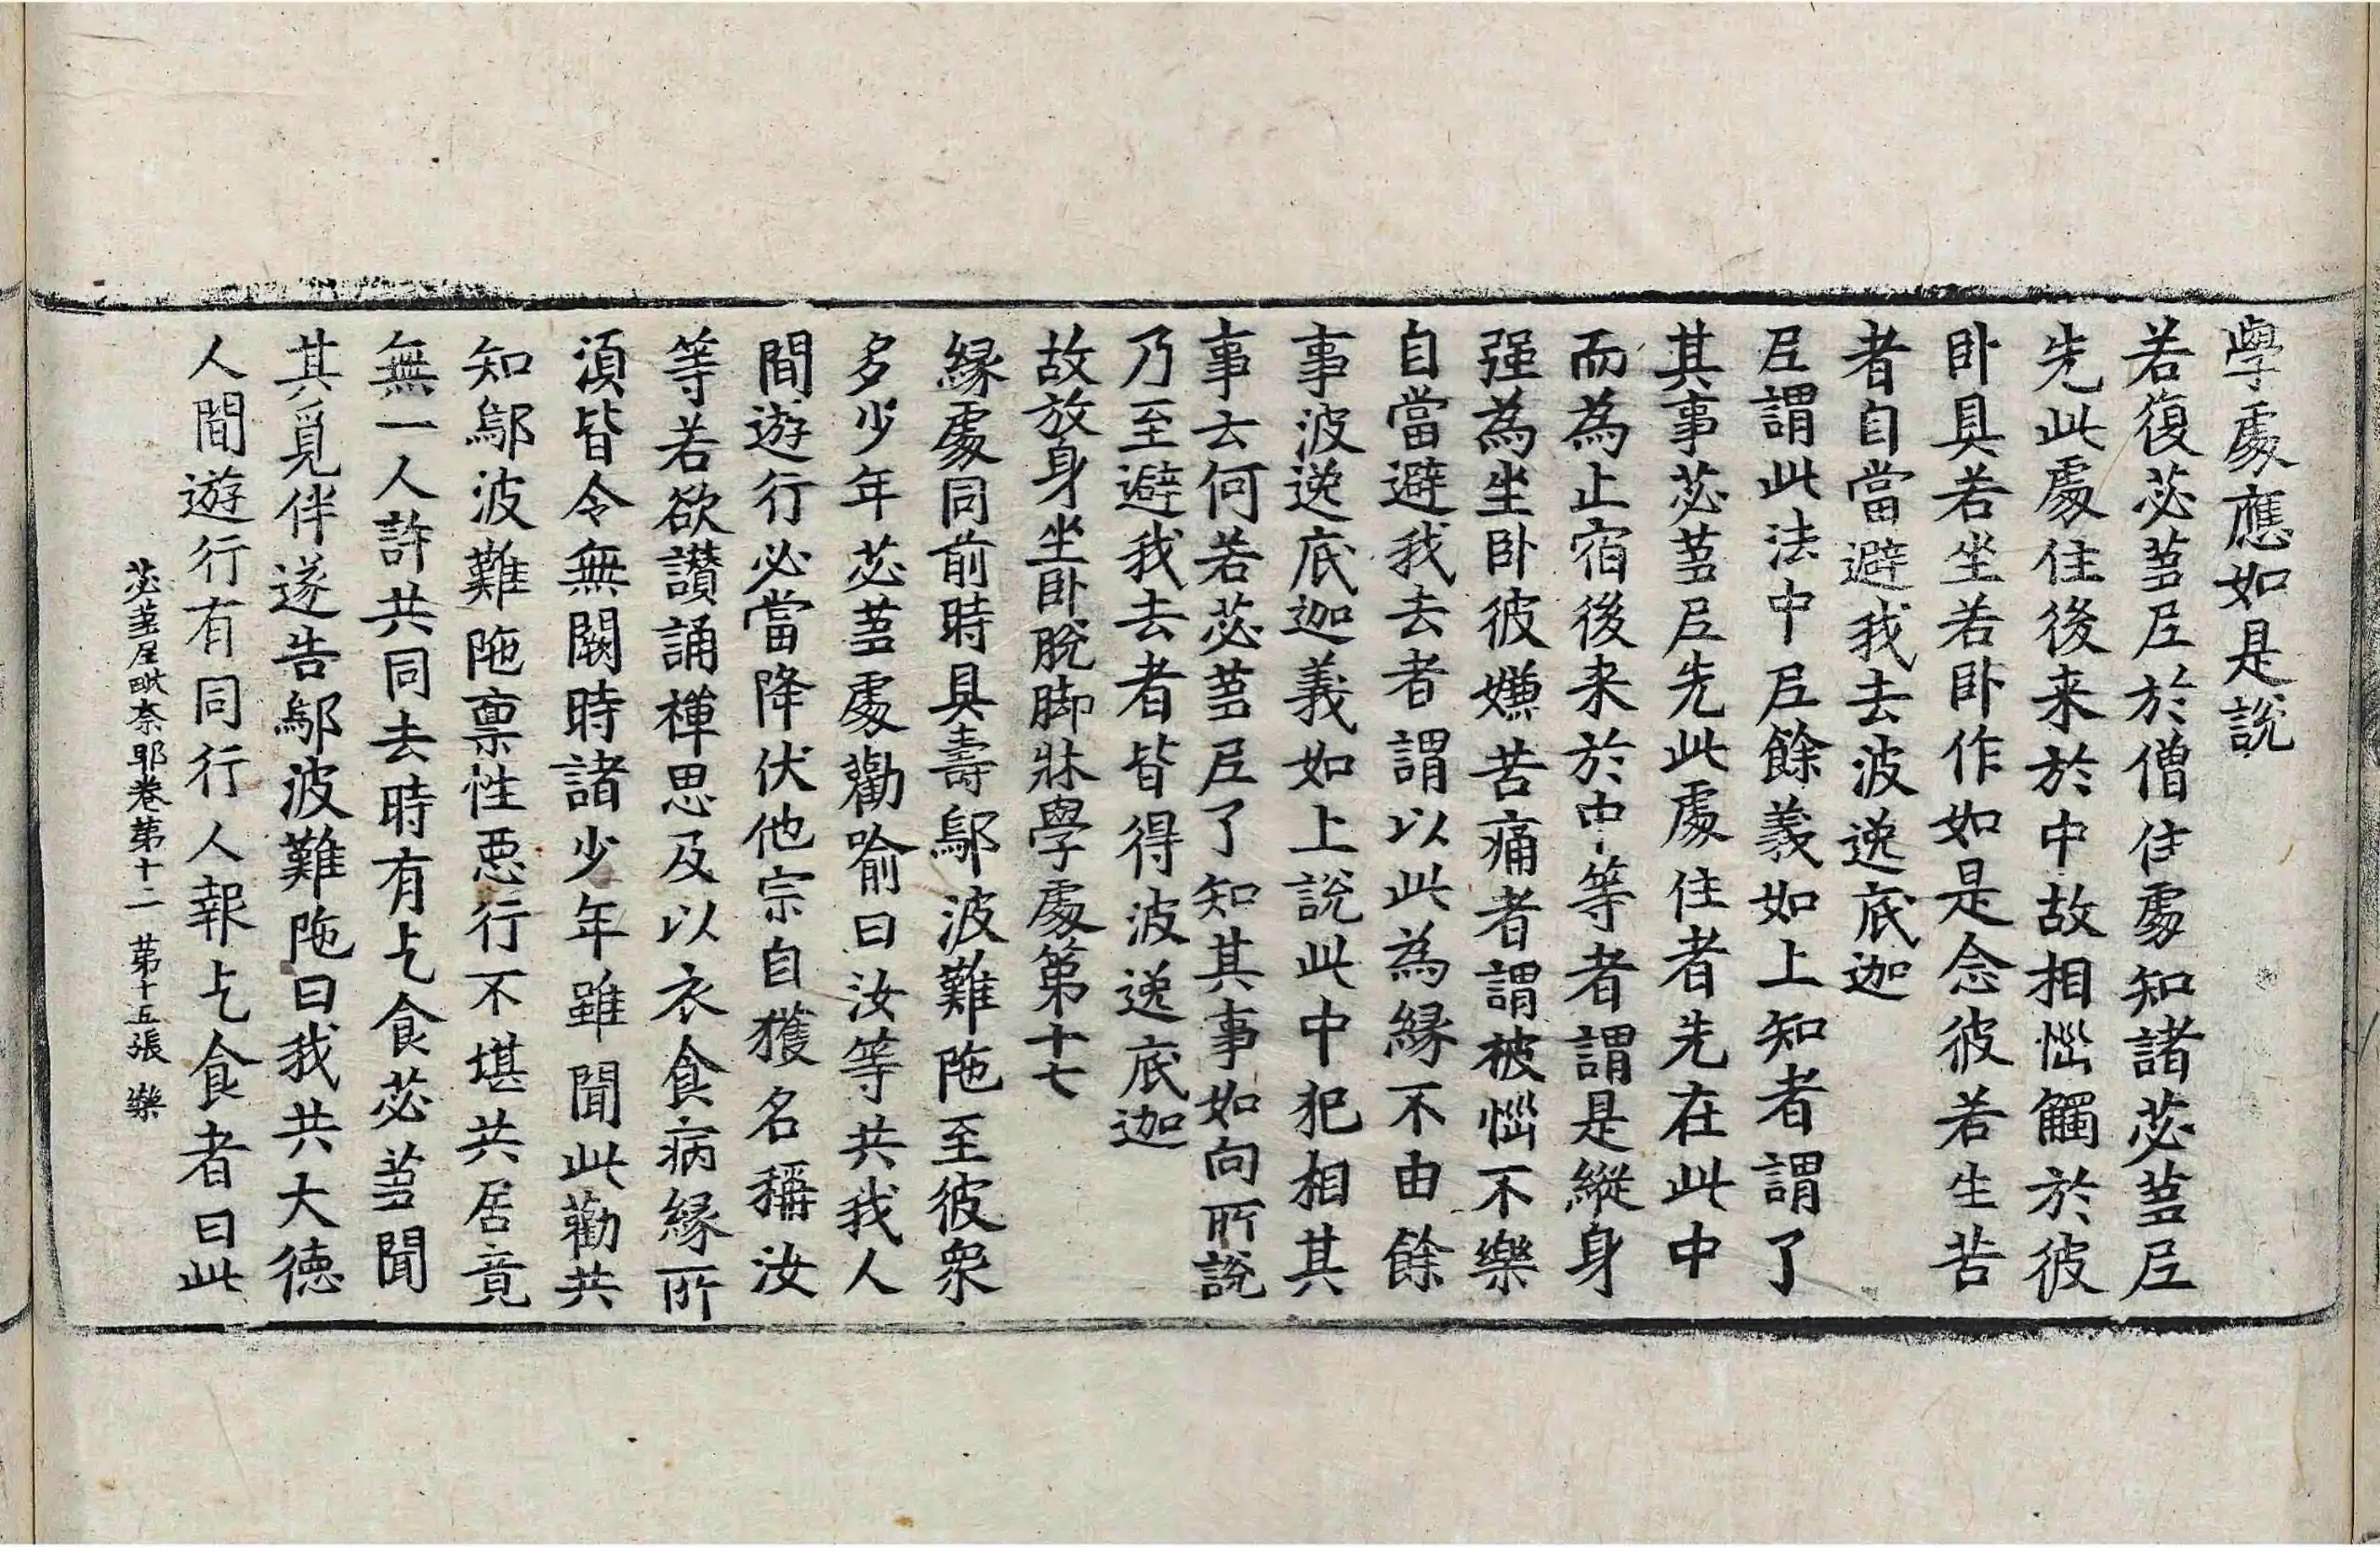 學處應如是說
若復苾蒭尼於僧住處知諸苾蒭尼
先此處住後来於中故相惱觸於彼
卧具若坐若卧作如是念彼若生苦
者自當避我去波逸底迦
尼謂此法中尼餘義如上知者謂了
其事苾蒭尼先此處住者先在此中
而為止宿後来於中等者謂是縱身
强為坐卧彼嫌苦痛者謂被惱不樂
自當避我去者謂以此為緣不由餘
事波逸底迦義如上說此中犯相其
事云何若苾蒭尼了知其事如向所說
乃至避我去者皆得波逸底迦
故放身坐卧脫脚牀學處第十七
緣處同前時具壽鄔波難陁至彼衆
多少年苾蒭處勸喻曰汝等共我人
間遊行必當降伏他宗自獲名稱汝
等若欲讚誦禪思及以衣食病緣所
須皆令無闕時諸少年雖聞此勸共
知鄔波難陁禀性惡行不堪共居竟
無一人許共同去時有乞食苾蒭聞
其覓伴遂告鄔波難陁曰我共大德
人間遊行有同行人報乞食者曰此
苾蒭尼毗奈耶卷第十二 第十五張 樂